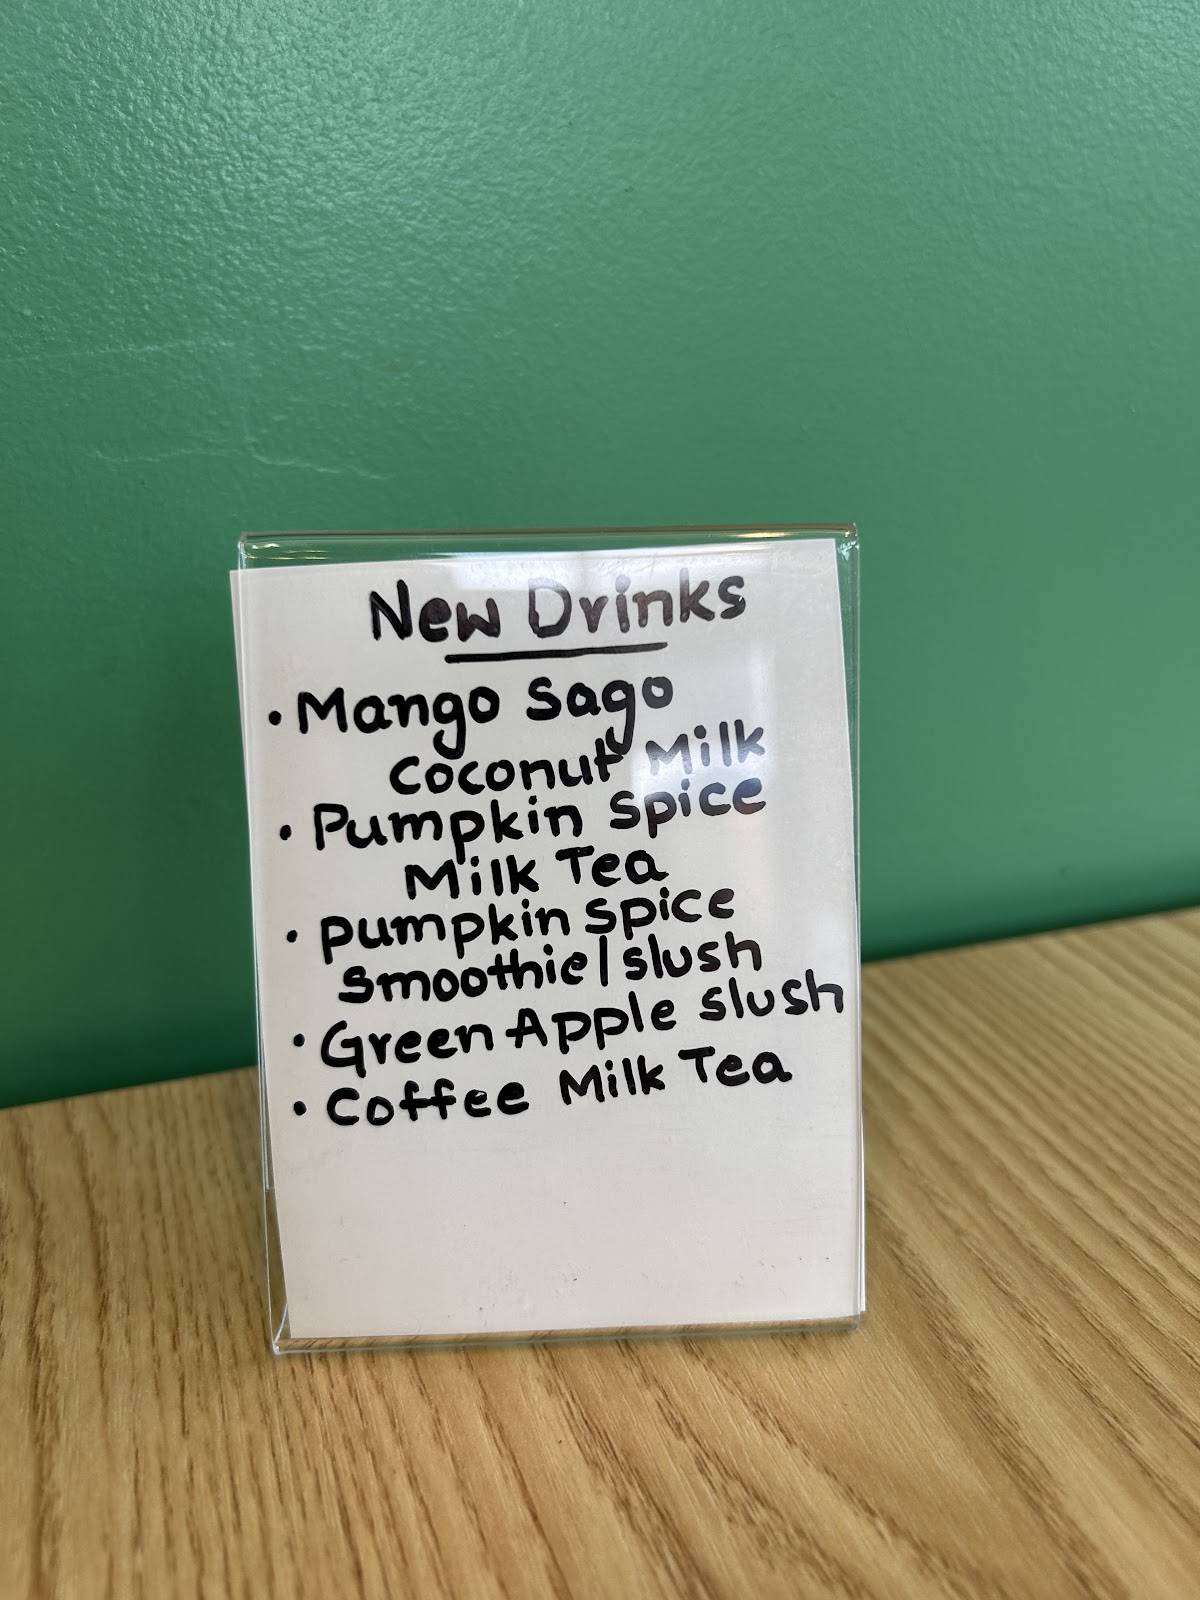 New Drinks
• Mango Sago
Coconut Milk
• Pumpkin Spice
Milk Tea
• pumpkin spice
smoothie/slush
• Green Apple slush
• Coffee Milk Tea